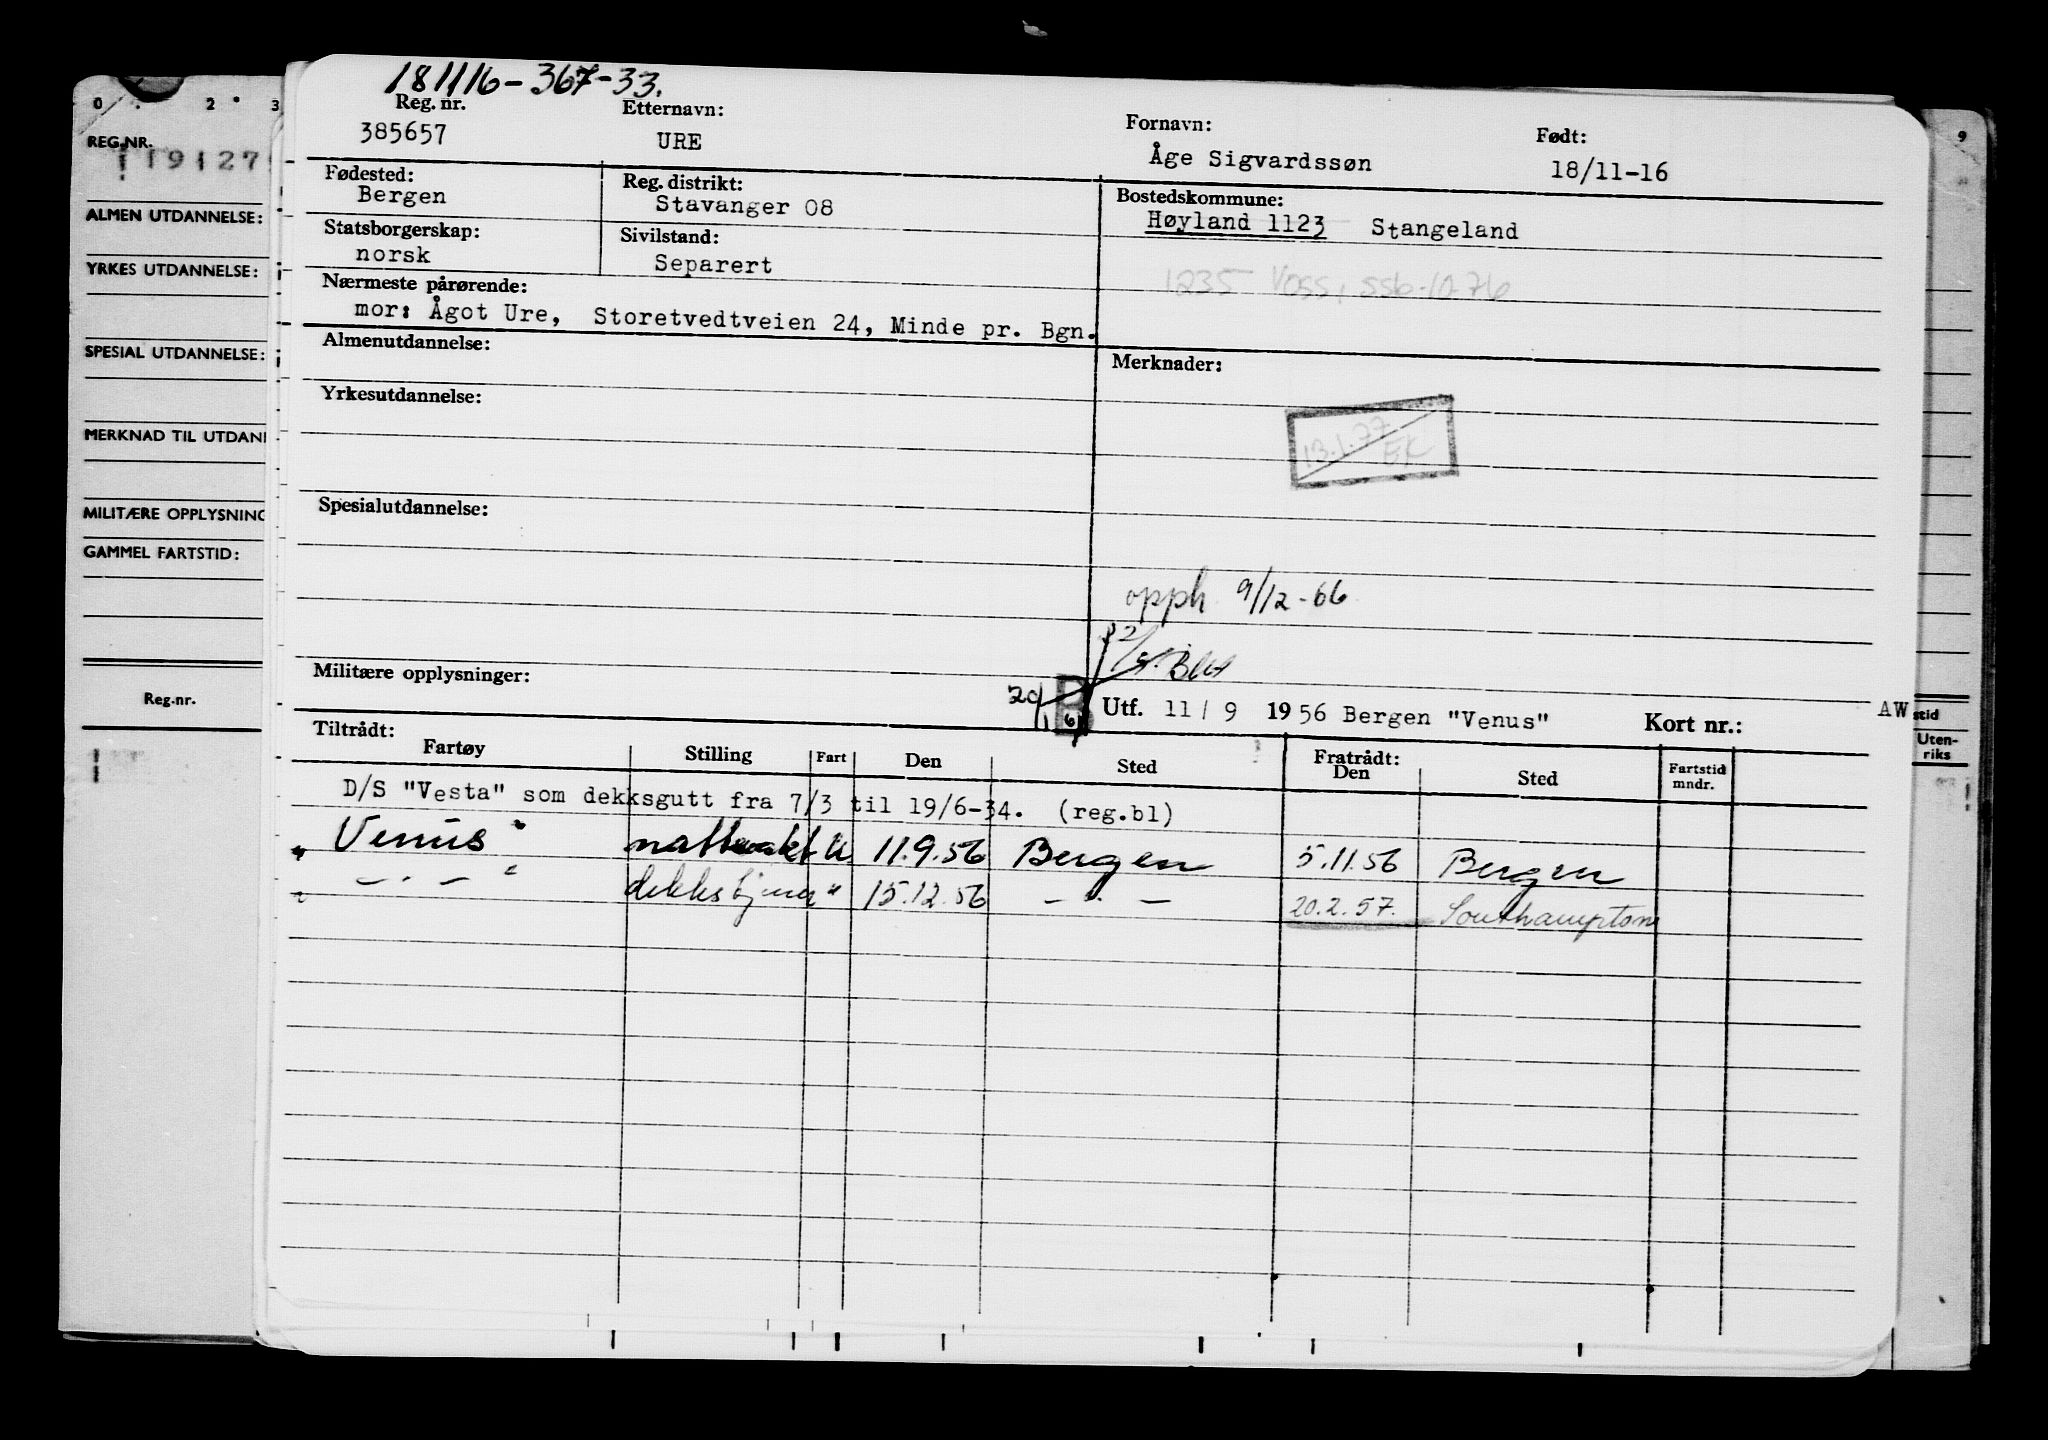 181116-367-33.
Reg. nr. Etternavn: Fornavn: Født:
385657 URE Åge Sigvardssøn 18/11-16
Fødested: Reg. distrikt: Bostedskommune:
Bergen Stavanger 08 Høyland 1123 Stangeland
Statsborgerskap: Sivilstand:
norsk Separert
1235 Voss, ssb-10-76
Nærmeste pårørende:
mor: Ågot Ure, Storetvedtveien 24, Minde pr. Bgn.
Almenutdannelse: Merknader:
Yrkesutdannelse:
13.1.77 EK
Spesialutdannelse:
opph 9/12-66
Militære opplysninger:
Utf. 11/9 1956 Bergen "Venus" Kort nr.: AW
Tiltrådt: Fratrådt:
Fartøy Stilling Fart Den Sted Den Sted Fartstid mndr.
D/S "Vesta" som dekksgutt fra 7/3 til 19/6-34. (reg.bl)
"Venus" nattvakt U 11.9.56 Bergen 5.11.56 Bergen
" — . — " dekksbjmq " 15.12.56 — . — 20.2.57. Southampton
0 2 3
REG.NR.
19127
ALMEN UTDANNELSE:
YRKES UTDANNELSE:
SPESIAL UTDANNELSE:
MERKNAD TIL UTDAN
MILITÆRE OPPLYSNING
GAMMEL FARTSTID:
Reg.nr.
9
stid
Uten-
riks